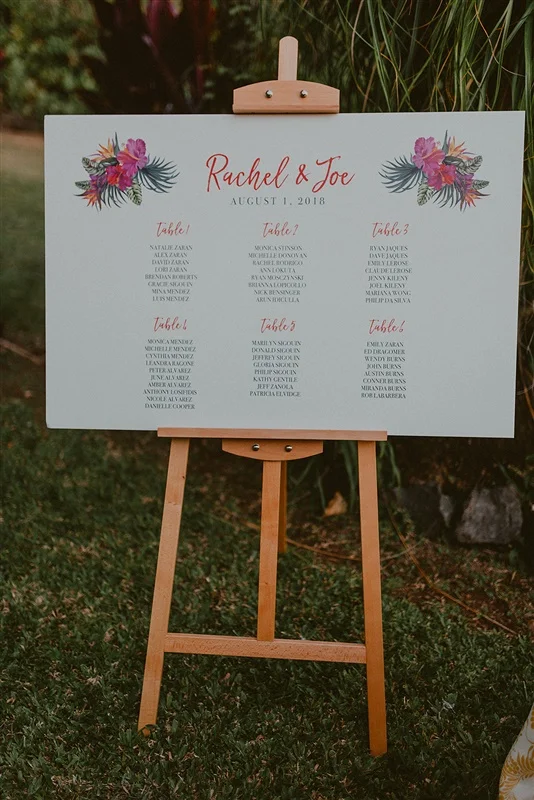 Rachel & Joe
AUGUST 1, 2018
Table 1
NATALIE ZABAN
ALEX ZABAN
DAVID ZABAN
LORI ZABAN
BRENDAN ROBERTS
GRACIE SIGOUIN
MINA MENDEZ
LUIS MENDEZ
Table 2
MONICA STINSON
MICHELLE DONOVAN
RACHEL RODRIGO
ANN LOKUTA
RYAN MOSCZYNSKI
BRIANNA LOPICOLLO
NICK BENSINGER
ARUN IDICULLA
Table 3
RYAN JAQUES
DAVE JAQUES
EMILY LEROSE
CLAUDE LEROSE
JENNY KILENY
JOEL KILENY
MARIANA WONG
PHILIP DA SILVA
Table 4
MONICA MENDEZ
MICHELLE MENDEZ
CYNTHIA MENDEZ
LEANDRA RAGONE
PETER ALVAREZ
JUNE ALVAREZ
AMBER ALVAREZ
ANTHONY LOSIFIDIS
NICOLE ALVAREZ
DANIELLE COOPER
Table 5
MARILYN SIGOUIN
DONALD SIGOUIN
JEFFREY SIGOUIN
GLORIA SIGOUIN
PHILIP SIGOUIN
KATHY GENTILE
JEFF ZANOLA
PATRICIA ELVIDGE
Table 6
EMILY ZABAN
ED DRAGOMER
WENDY BURNS
JOHN BURNS
AUSTIN BURNS
CONNER BURNS
MIRANDA BURNS
ROB LABARBERA